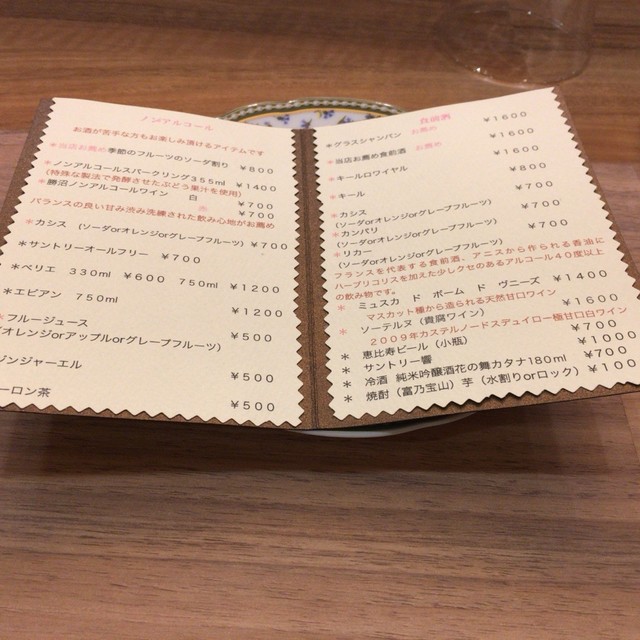 ノンアルコール
お酒が苦手な方もお楽しみ頂けるアイテムです
*当店お薦め季節のフルーツのソーダ割り ¥800
*ノンアルコールスパークリング355ml ¥1400
(特殊な製法で発酵させたぶどう果汁を使用)
*勝沼ノンアルコールワイン 白 ¥700
¥700
バランスの良い甘み渋み洗練された飲み心地がお薦め
*カシス (ソーダorオレンジorグレープフルーツ) ¥700
*サントリーオールフリー ¥700
*ペリエ 330ml ¥600 750ml ¥1200
*エビアン 750ml ¥1200
*フルージュース
オレンジorアップルorグレープフルーツ) ¥500
ジンジャーエル ¥500
ーロン茶 ¥500
食前酒
*グラスシャンパン お薦め ¥1600
*当店お薦め食前酒 お薦め ¥1600
*キールロワイヤル ¥1600
*キール ¥800
*カシス ¥700
(ソーダorオレンジorグレープフルーツ)
*カンパリ ¥700
(ソーダorオレンジorグレープフルーツ)
*リカー ¥700
(ソーダorオレンジorグレープフルーツ)
フランスを代表する食前酒、アニスから作られる香油に
ハーブリコリスを加えた少しクセのあるアルコール40度以上
の飲み物です。
* ミュスカ ド ボーム ド ヴニーズ ¥1400
マスカット種から造られる天然甘口ワイン
* ソーテルヌ(貴腐ワイン) ¥1600
2009年カステルノードスデュイロー極甘口白ワイン
* 恵比寿ビール(小瓶) ¥700
* サントリー響 ¥1000
* 冷酒 純米吟醸酒花の舞カタナ180ml ¥700
* 焼酎(富乃宝山)芋(水割りorロック) ¥100